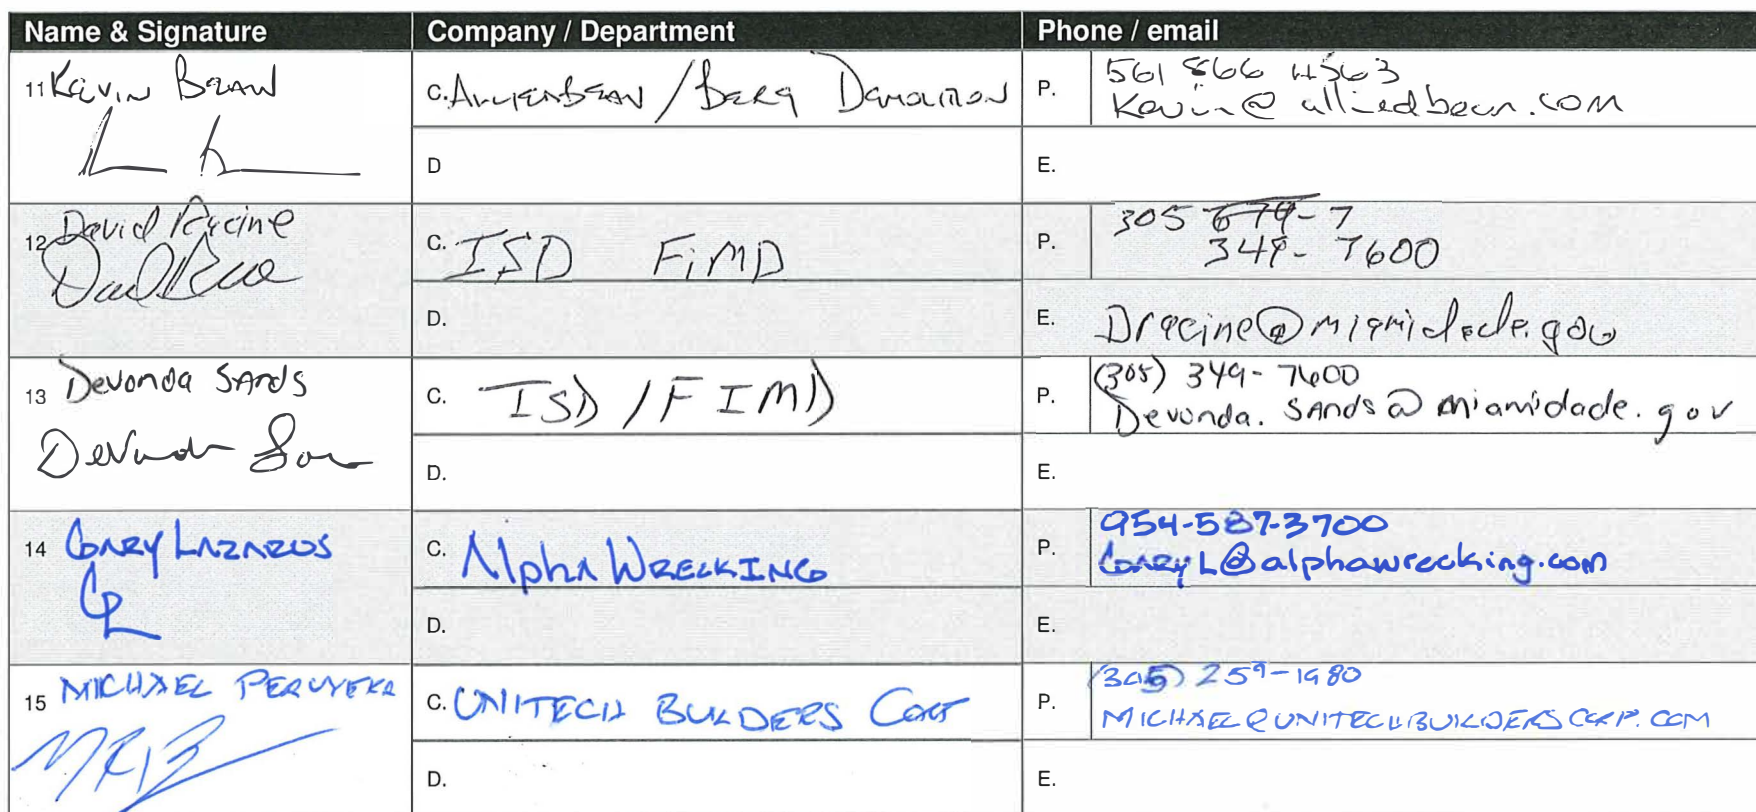 Name & Signature Company / Department Phone / email
11 KEVIN BEAN C. ALLIEDBEAN / BERG DEMOLITION P. 561 866 4563
Kevin@alliedbean.com
D E.
12 David Racine C. ISD FiMD P. 305 679-7
349-7600
D. E. Dracine@miamidade.gov
13 Devonda SANDS C. ISD / FIMD P. (305) 349-7600
Devonda.SANDS@miamidade.gov
D. E.
14 GARY LAZARUS C. Alpha WRECKING P. 954-587-3700
GARYL@alphawrecking.com
D. E.
15 MICHAEL C. UNITECH BUILDERS CORP P. (305) 259-1980
MICHAEL@UNITECHBUILDERSCORP.COM
D. E.